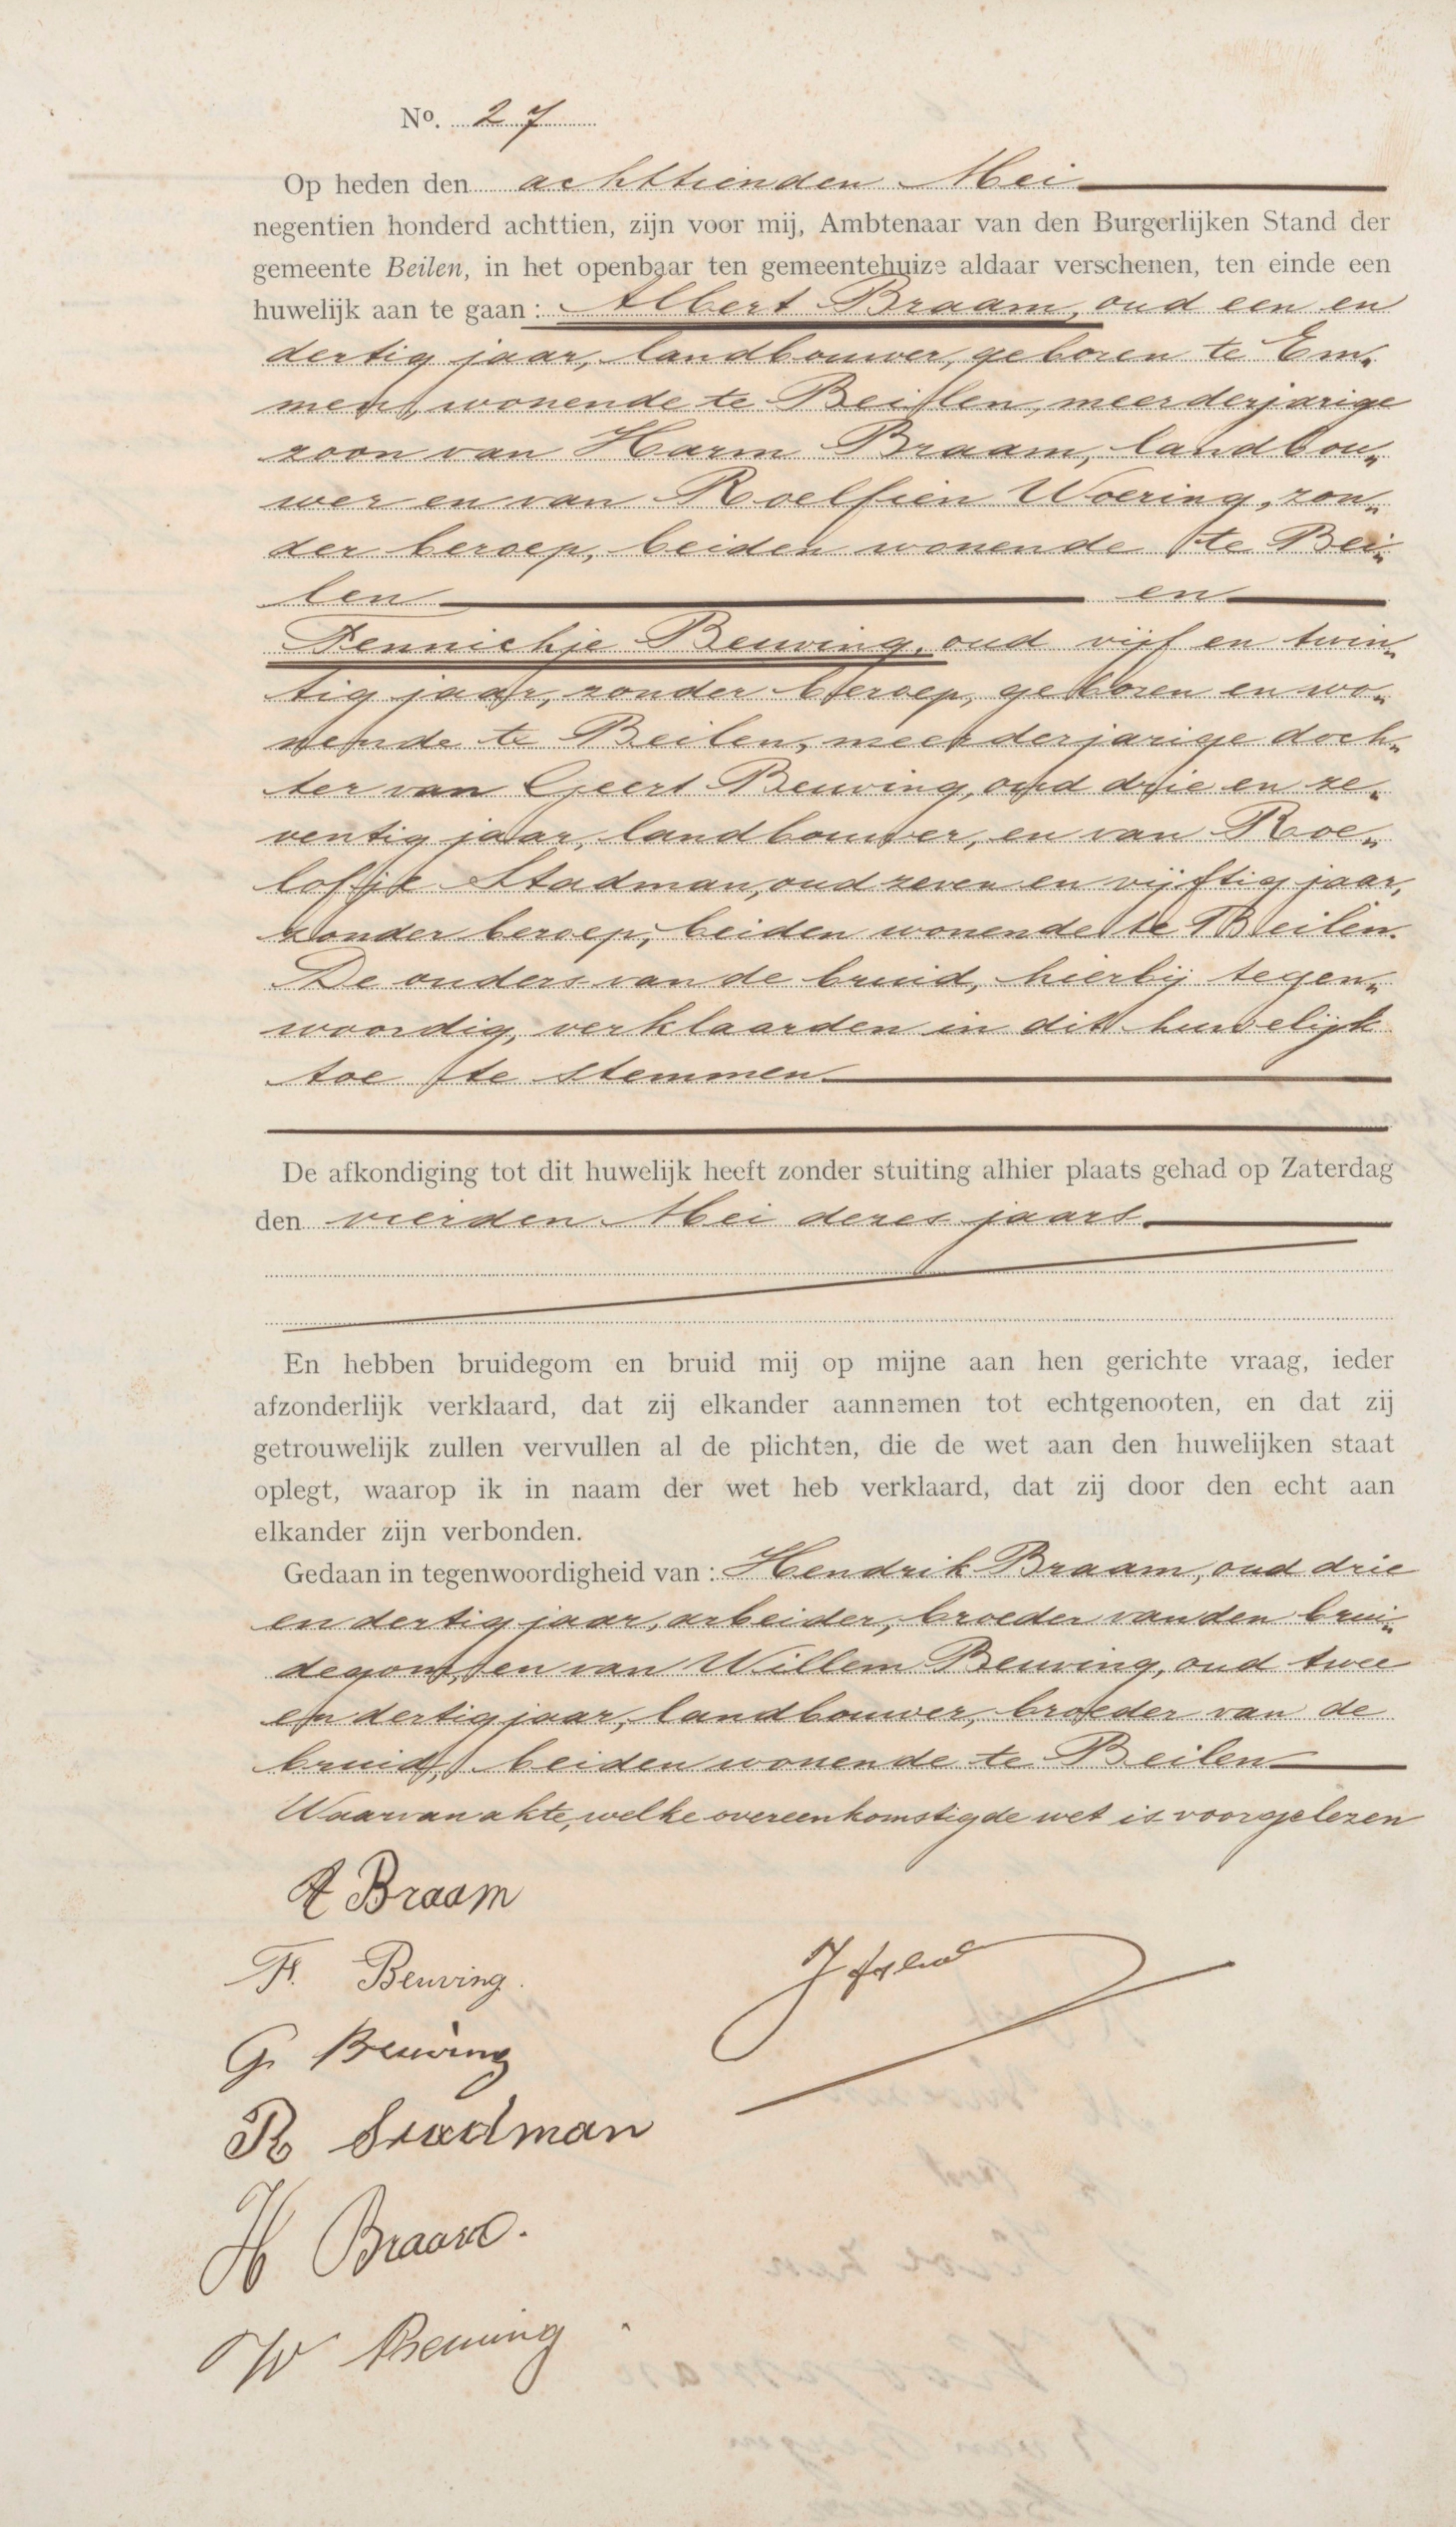 No. 27
Op heden den achttienden Mei
negentien honderd achttien, zijn voor mij, Ambtenaar van den Burgerlijken Stand der
gemeente Beilen, in het openbaar ten gemeentehuize aldaar verschenen, ten einde een
huwelijk aan te gaan: Albert Braam, oud een en
dertig jaar, landbouwer, geboren te Em„
men, wonende te Beilen, meerderjarige
zoon van Harm Braam, landbou„
wer en van Roelfien Woering, zon„
der beroep, beiden wonende te Bei„
len en
Fennichje Beuving, oud vijf en twin„
tig jaar, zonder beroep, geboren en wo„
nende te Beilen, meerderjarige doch„
ter van Geert Beuving, oud drie en ze„
ventig jaar, landbouwer, en van Roe„
lofje Stadman, oud zeven en vijftig jaar,
zonder beroep, beiden wonende te Beilen.
De ouders van de bruid, hierbij tegen„
woordig, verklaarden in dit huwelijk
toe te stemmen.
De afkondiging tot dit huwelijk heeft zonder stuiting alhier plaats gehad op Zaterdag
den vierden Mei dezes jaars.
En hebben bruidegom en bruid mij op mijne aan hen gerichte vraag, ieder
afzonderlijk verklaard, dat zij elkander aannemen tot echtgenooten, en dat zij
getrouwelijk zullen vervullen al de plichten, die de wet aan den huwelijken staat
oplegt, waarop ik in naam der wet heb verklaard, dat zij door den echt aan
elkander zijn verbonden.
Gedaan in tegenwoordigheid van: Hendrik Braam, oud drie
en dertig jaar, arbeider, broeder van den brui„
degom, en van Willem Beuving, oud twee
en dertig jaar, landbouwer, broeder van de
bruid, beiden wonende te Beilen
Waarvan akte, welke overeenkomstig de wet is voorgelezen
A Braam
F. Beuving.
G. Beuving
R Stadman
H Braam.
W Beuving